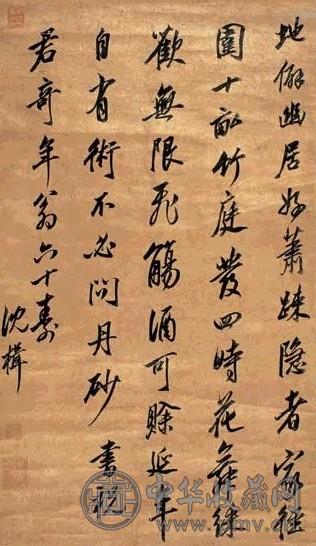 地僻幽居好蕭踈隐者家徑
圍十畝竹庭發四時花舞綵
歡無限飛觴酒可賒延年
自有術不必問丹砂 書祝
君奇年翁六十壽
沈楫
中华收藏网